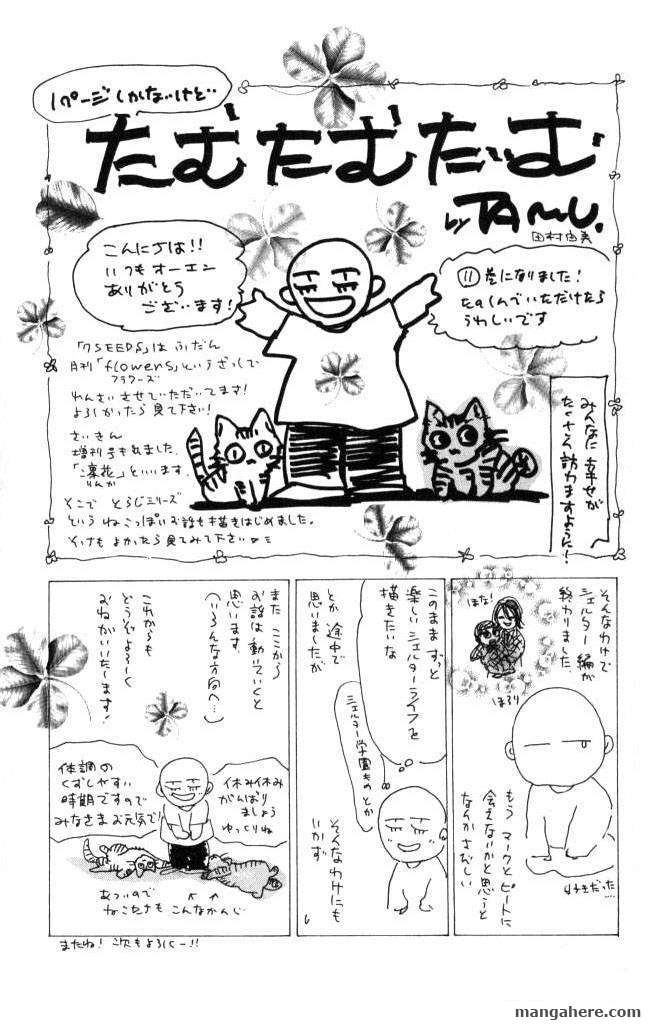 1ページしかないけど
たむたむたいむ
by TAMU.
田村由美
こんにちは!!
いつもオーエン
ありがとう
ございます!
⑪巻になりました!
たのしんでいただけたら
うれしいです
「7SEEDS」はふだん
月刊「flowers」というざっしで
フラワーズ
れんさいさせていただいてます!
よろしかったら見て下さい!
さいきん
増刊号も出ました
「凛花」といいます
りんか
そこで とらじシリーズ
という ねこっぽいお話も描きはじめました。
そっちもよかったら見てみて下さい
みんなに幸せが
たくさん訪れますように!
そんなわけで
シェルター編が
終わりました
ほな!
ほろり
もう マークとピートに
会えないかと思うと
なんかさびしい
好きだった…
このままずっと
楽しいシェルターライフを
描きたいな
とか 途中で
思いましたが
シェルター学園ものとか
そんなわけにも
いかず
また ここから
お話は動いていくと
思います
(いろんな方向へ…)
これからも
どうぞよろしく
おねがいいたします!
休み休み
がんばり
ましょう
ゆっくりね
体調の
くずしやすい
時期ですので
みなさまお元気で!
あついので
ねこたちも こんなかんじ
またね! 次もよろしくー!!
mangahere.com